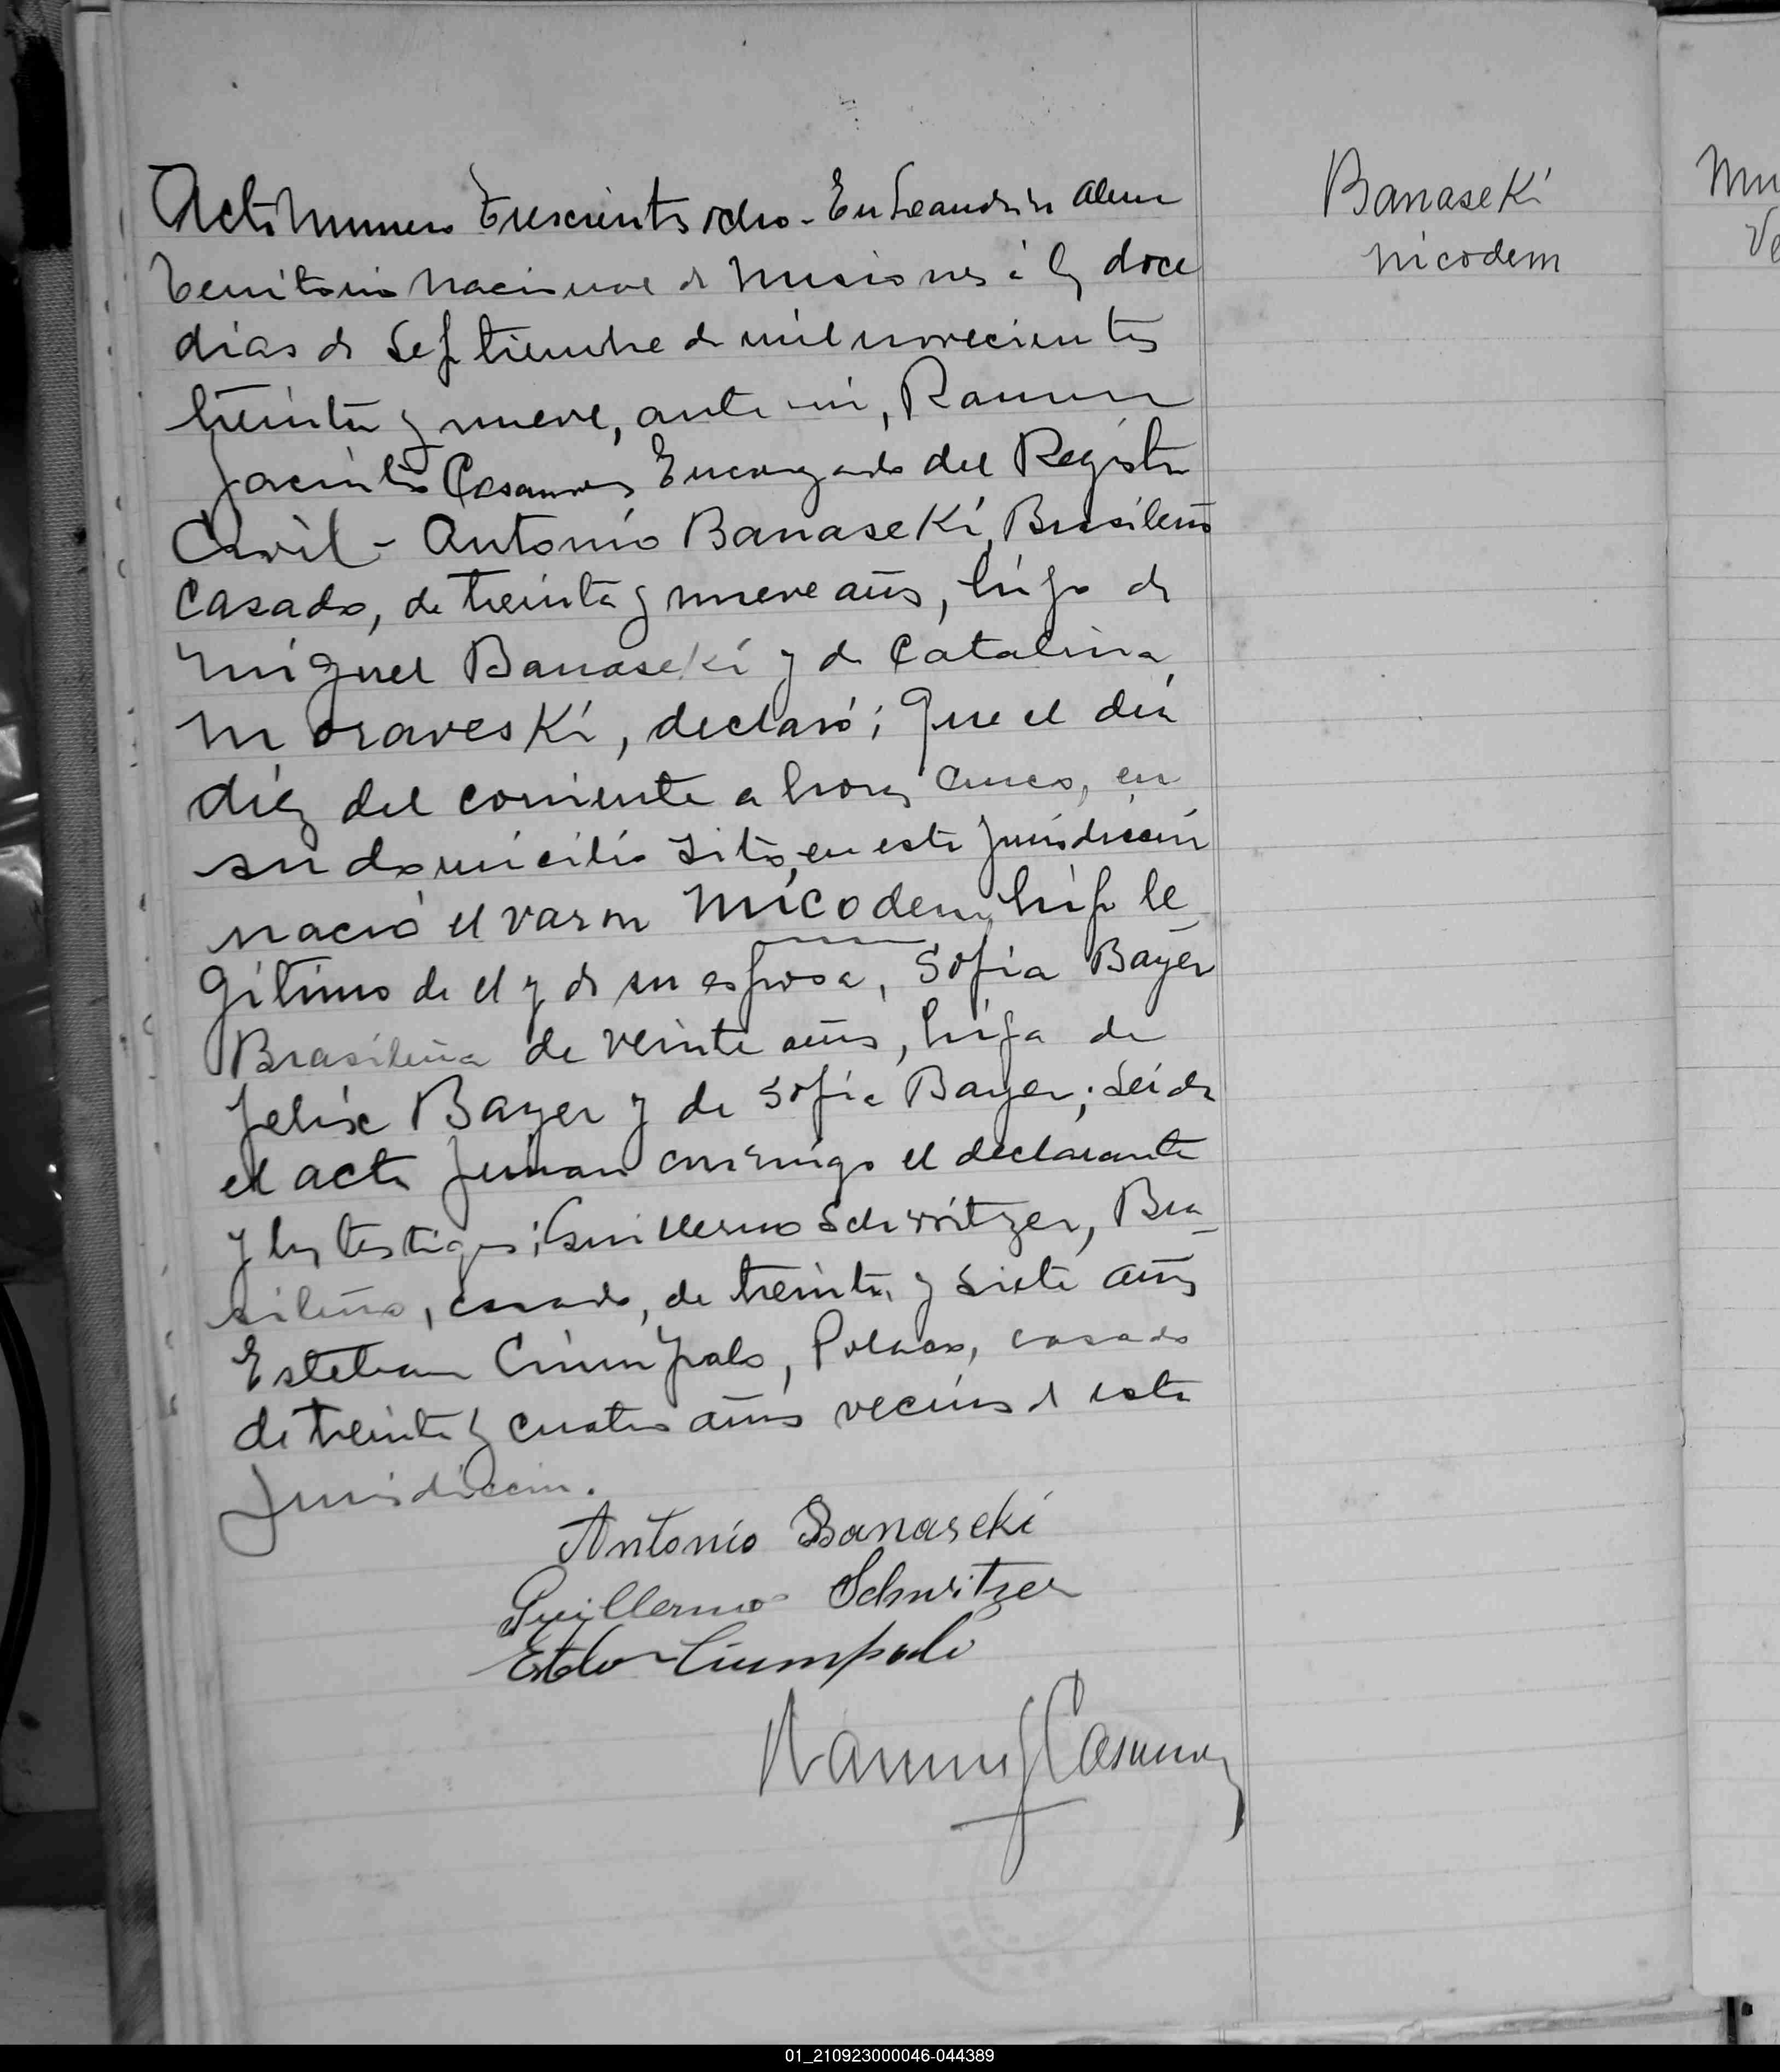 Acta Numero Trescientos ocho - En Leandro N Alem
Territorio Nacional de Misiones á los doce
dias de Septiembre de mil novecientos
treinta y nueve, ante mi, Ramon
Jacinto Casanova Encargado del Registro
Civil - Antonio Banaseki, Brasileño
Casado, de treinta y nueve años, hijo de
Miguel Banaseki y de Catalina
Moraveski, declaró; Que el dia
diez del corriente a horas cinco, en
su domicilio sito, en esta jurisdiccion
nació el varon Nicodem, hijo le
gitimo de el y de su esposa, Sofia Bayer
Brasileña de veinte años, hija de
Felix Bayer y de Sofia Bayer; Leida
el acta firman conmigo el declarante
y los testigos; Guillermo Schwitzer, Bra_
sileño, casado, de treinta y siete años
Esteban Polaco, casado
de treinta y cuatro años vecinos de esta
Jurisdiccion.
Antonio Banaseki
Guillermo Schwitzer
Ramon J Casanova
Banaseki
Nicodem
Mu
Ve
01_210923000046-044389